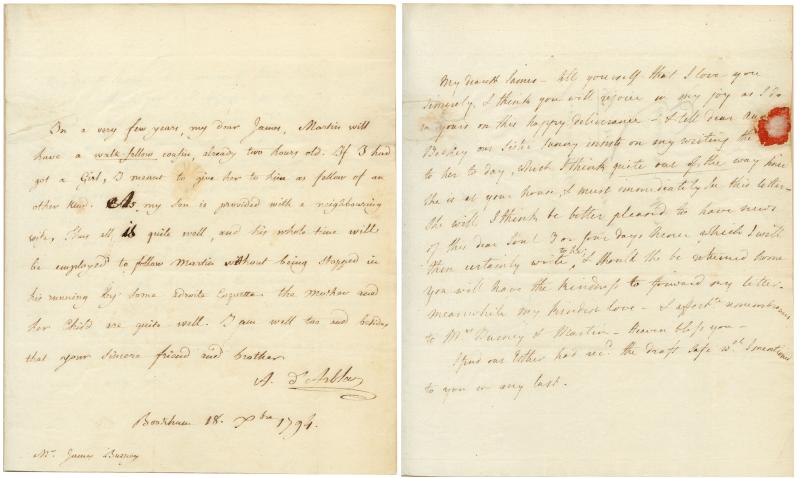 In a very few years, my dear James, Martin will
have a walk-fellow cousin, already two hours old. If I had
got a Girl, I meant to give her to him as fellow of an
other kind. As my son is provided with a neighbouring
wife, thus all is quite well, and his whole time will
be employed to follow Martin without being stopped in
his running by some adroite Coquette. the Mother and
her Child are quite well. I am well too and besides
that your sincere friend and brother
A. d'Arblay
Bookham 18. Xbre 1794.
Mr. James Burney
My dearest James - tell yourself that I love you
sincerely, I think you will rejoice in my joy as I do
in yours on this happy deliverance - & tell dear
Beckey our Sister Fanny insists on my writing
to her to day, which I think quite out of the way since
she is at your house, I must immediately this letter -
She will I think be better pleased to have news
of this dear Soul 3 or four days hence, which I will
then certainly write to her, & should she be returned home
you will have the kindness to forward my letter.
meanwhile my kindest love - & affecte. remembrances
to Mrs Burney & Martin - Heaven bless you -
I find our Esther had recd. the draft safe wch. I mentioned
to you in my last.